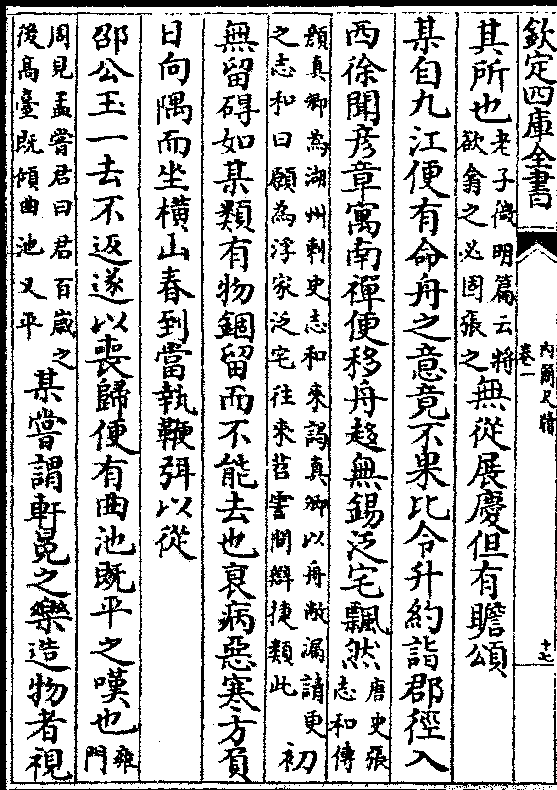 欽定四庫全書
內簡尺牘
卷一
十七
其所也老子微明篇云將欲翕之必固張之無從展慶但有瞻頌
某自九江便有命舟之意竟不果比令升約詣郡徑入
西徐聞彦章寓南禪便移舟趍無錫泛宅飄然唐史張志和傳
顔真卿為湖州刺史志和來謁真卿以舟敝漏請更之志和曰願為浮家泛宅往來苕霅間辯捷類此初
無留碍如某類有物錮留而不能去也衰病惡寒方負
日向隅而坐横山春到當執鞭弭以從
邵公玉一去不返遂以喪歸便有曲池既平之嘆也雍門
周見孟嘗君曰君百嵗之後髙臺既傾曲池又平某嘗謂軒冕之樂造物者視